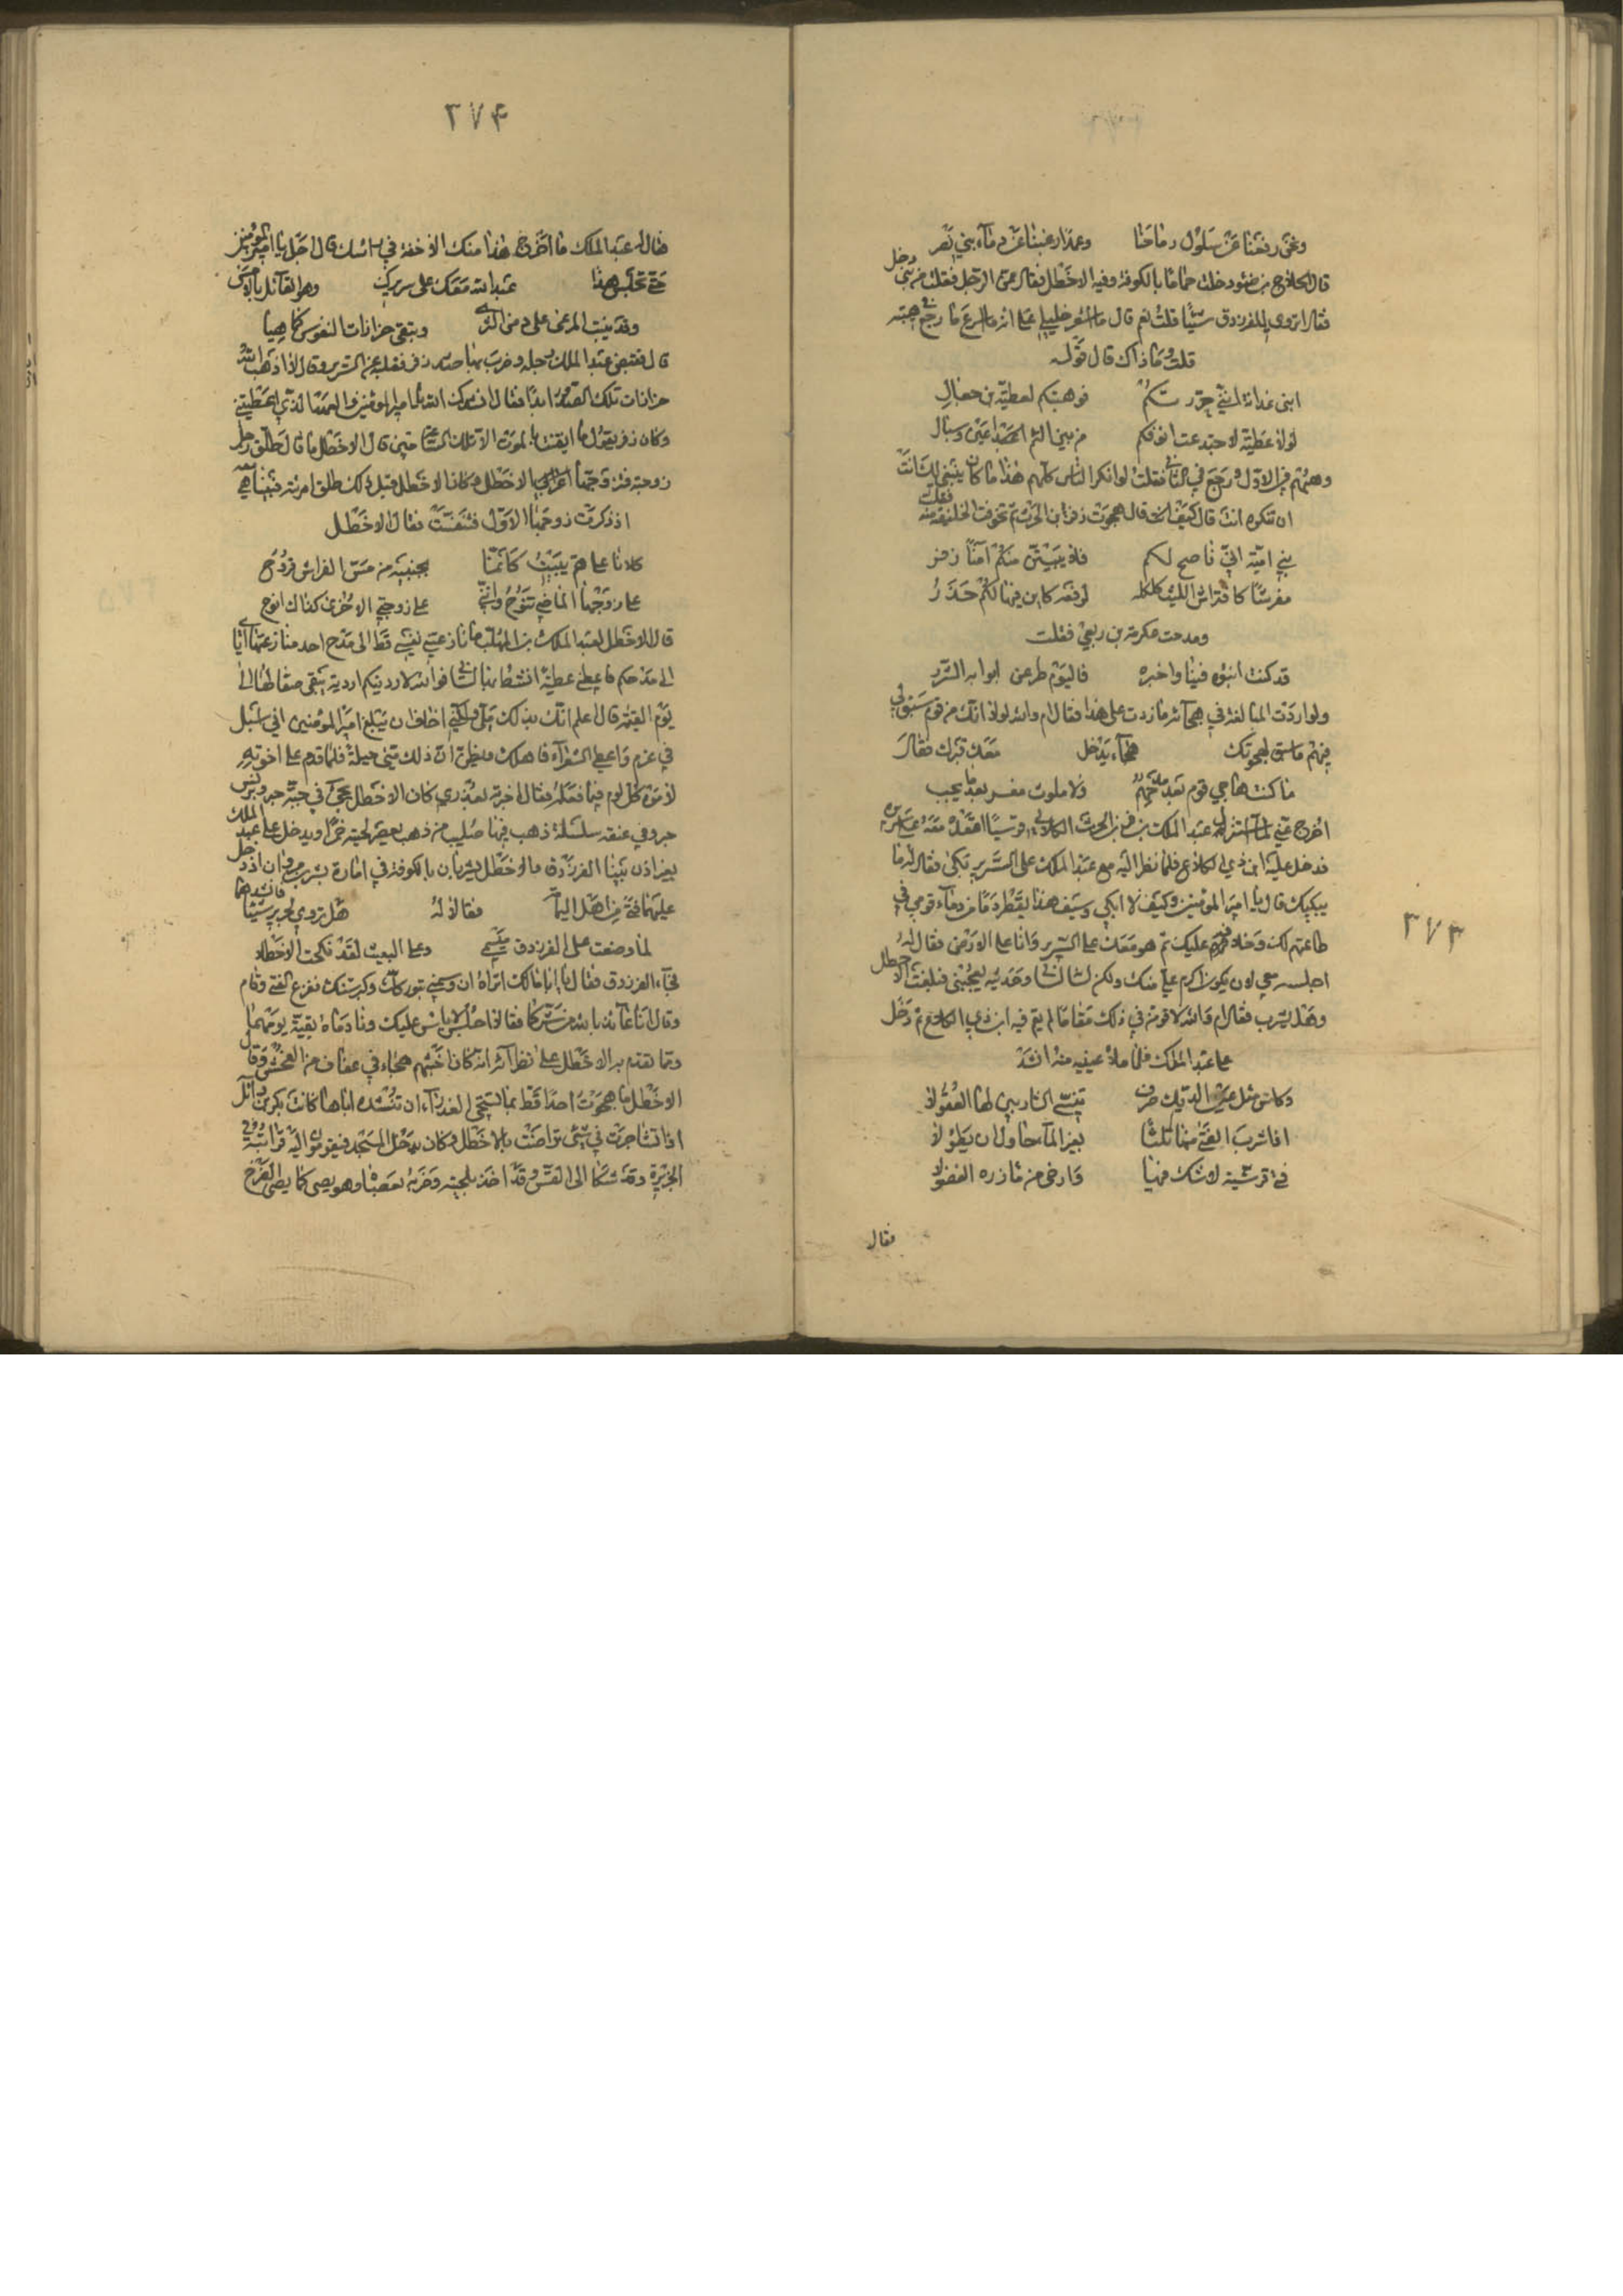 ونحن رفعنا عن سلول رماحنا وعمدا رغبنا عن دماء بني نصر
دخل
قال دخلت حماما بالكوفة وفيه الاخطل فقال ممن الرجل فقلت من بني
فقال اتروي للفرزدق شيئا قلت نعم قال ما اشعر خليلي على انه ما اسرع ما رجع في هبته
قلت وما ذاك قال قوله
ابني غدانة انني حررتكم فوهبتكم لعطية بن جعال
لولا عطية لاجتدعت انوفكم من بين الأم اعين وسبال
وهبهم في الاول ورجع في الثاني فقلت لو انكر الناس كلهم هذا ما كان ينبغي لك انت
ان تنكره انت قال كيف قال هجوت زفر ابن الحرث ثم خوفت الخليفة منه
فقلت
بني امية اني ناصح لكم فلا يبيتن منكم آمنا زفر
مفترشا كافتراش الليث كلكله لوقعة كاين فيها لكم حذر
ومدحت عكرمة بن ربعي فقلت
قد كنت انبؤه قينا واخبره فاليوم طير عن اثوابه الشرر
ولو اردت المبالغة في هجائه ما زدت على هذا فقال ام والله لولا انك من قوم سبق لي
منهم ما سبق لهجوتك هجاء يدخل معك قبرك فقال
ما كنت هاجي قوم بعد مدحهم ولا
اخرج عني لما استنزل عبد الملك بن زفر بن الحرث الكلابي اقعده معه على سريره
فدخل عليه ابن ذي الكلاع فلما نظر اليه مع عبد الملك على السرير بكى فقال له ما
يبكيك قال يا امير المؤمنين وكيف لا ابكي وسيف هذا يقطر دما من دماء قومي في
طاعتهم لك وخلافهم عليك ثم هو معك على السرير وانا على الارض فقال له
اجلسه معي لان يكون اكرم علي منك ولكن لسانه وحديثه يعجبني فبلغت الاخطل
وهو يشرب فقال ام والله لاقومن في ذلك مقاما لم يقم فيه ابن ذي الكلاع ثم دخل
على عبد الملك فلما ملا عينيه منه انشد
وكاس مثل عين الديك صرف تنسي الشاربين لها العقولا
اذا شرب الفتى منها ثلاثا بغير الماء حاول ان يطولا
مشى قرشية لا شك فيها وارخى من مازره الفضولا
فقال
٣٧٣
٣٧۴
فقال له عبد الملك ما اخرج هذا منك الا خطة في راسك قال اجل يا امير المؤمنين
حتى تجلس هذا عدو الله معك على سريرك وهو القائل بالامس
وقد ينبت المرعى على دمن الثرى وتبقى حزازات النفوس كما هيا
قال فقبض عبد الملك رجله وضرب بها صدر زفر فقلبه عن السرير وقال اذهب الله
حزازات تلك الصدور ابدا فقال انشدك الله يا امير المؤمنين والعهد الذي اعطيتني
وكان زفر يقول ما ايقنت بالموت الا تلك الساعة حين قال الاخطل ما قال طلق رجل
زوجته فتزوجها الاخطل وكان الاخطل قبل ذلك طلق امرئته فبينا هي
اذ ذكرت زوجها الاول فتنفست فقال الاخطل
كلانا على هم يبيت كانما بجنبيه من مس الفراش قروح
على زوجها الماضي تنوح وانني على زوجتي الاخرى كذاك انوح
قال الاخطل لعبد الملك بن المهلب ما نازعتني نفسي قط الى مدح احد ما نازعتني
الى مدحكم فاعطني عطية انبسط بها لساني فوالله لاردينكم اردية يبقى صقالها الى
يوم القيمة قال اعلم انك بذلك ملي ولكني اخاف ان يبلغ امير المؤمنين اني اسئل
في غرم واعطي الشعراء فاهلك ويظن ان ذلك مني حيلة فلما قدم على اخوته
لاموه كل لوم فيما فعله فقال اخبرته بعذري كان الاخطل يجي في جبة خز وبرنس
خز وفي عنقه سلسلة ذهب فيها صليب من ذهب تعصر لحيته خمرا ويدخل على عبد الملك
بغير اذن بينا الفرزدق والاخطل يشربان بالكوفة في امارة بشر بن مروان اذ دخل
عليهما فتى من اهل اليمامة فقالا له هل تروي لجرير شيئا فانشدهما
لما وضعت على الفرزدق ميسمي وعلى البعيث لقد نكحت الاخطلا
فجاء الفرزدق فقال يا ابا مالك اتراه ان وسمني يتوركك على كبر سنك ففزع الفتى وقام
وقال انا عائذ بالله من شركما فقالا اجلس لا باس عليك ونادماه بقية يومهما
ومما تقدم به الاخطل على نظرائه انه كان اخبثهم هجاء في عفاف من الفحش وقال
الاخطل ما هجوت احدا قط بما تستحي العذراء ان تنشده اباها كانت بكر بن وائل
اذا تشاجرت في شئ تراضت بالاخطل وكان يدخل المسجد فيقومون اليه فرايته في
الجزيرة وقد شكا الى القس وقد اخذ بلحيته وضربه بعصاه وهو يصئ كما يصئ الفرخ